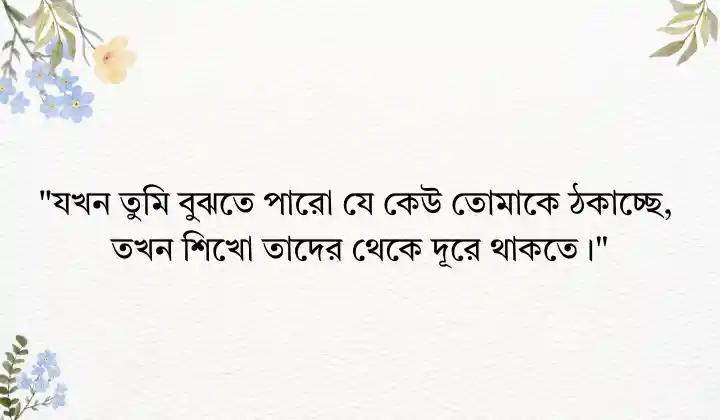 "যখন তুমি বুঝতে পারো যে কেউ তোমাকে ঠকাচ্ছে,
তখন শিখো তাদের থেকে দূরে থাকতে।"